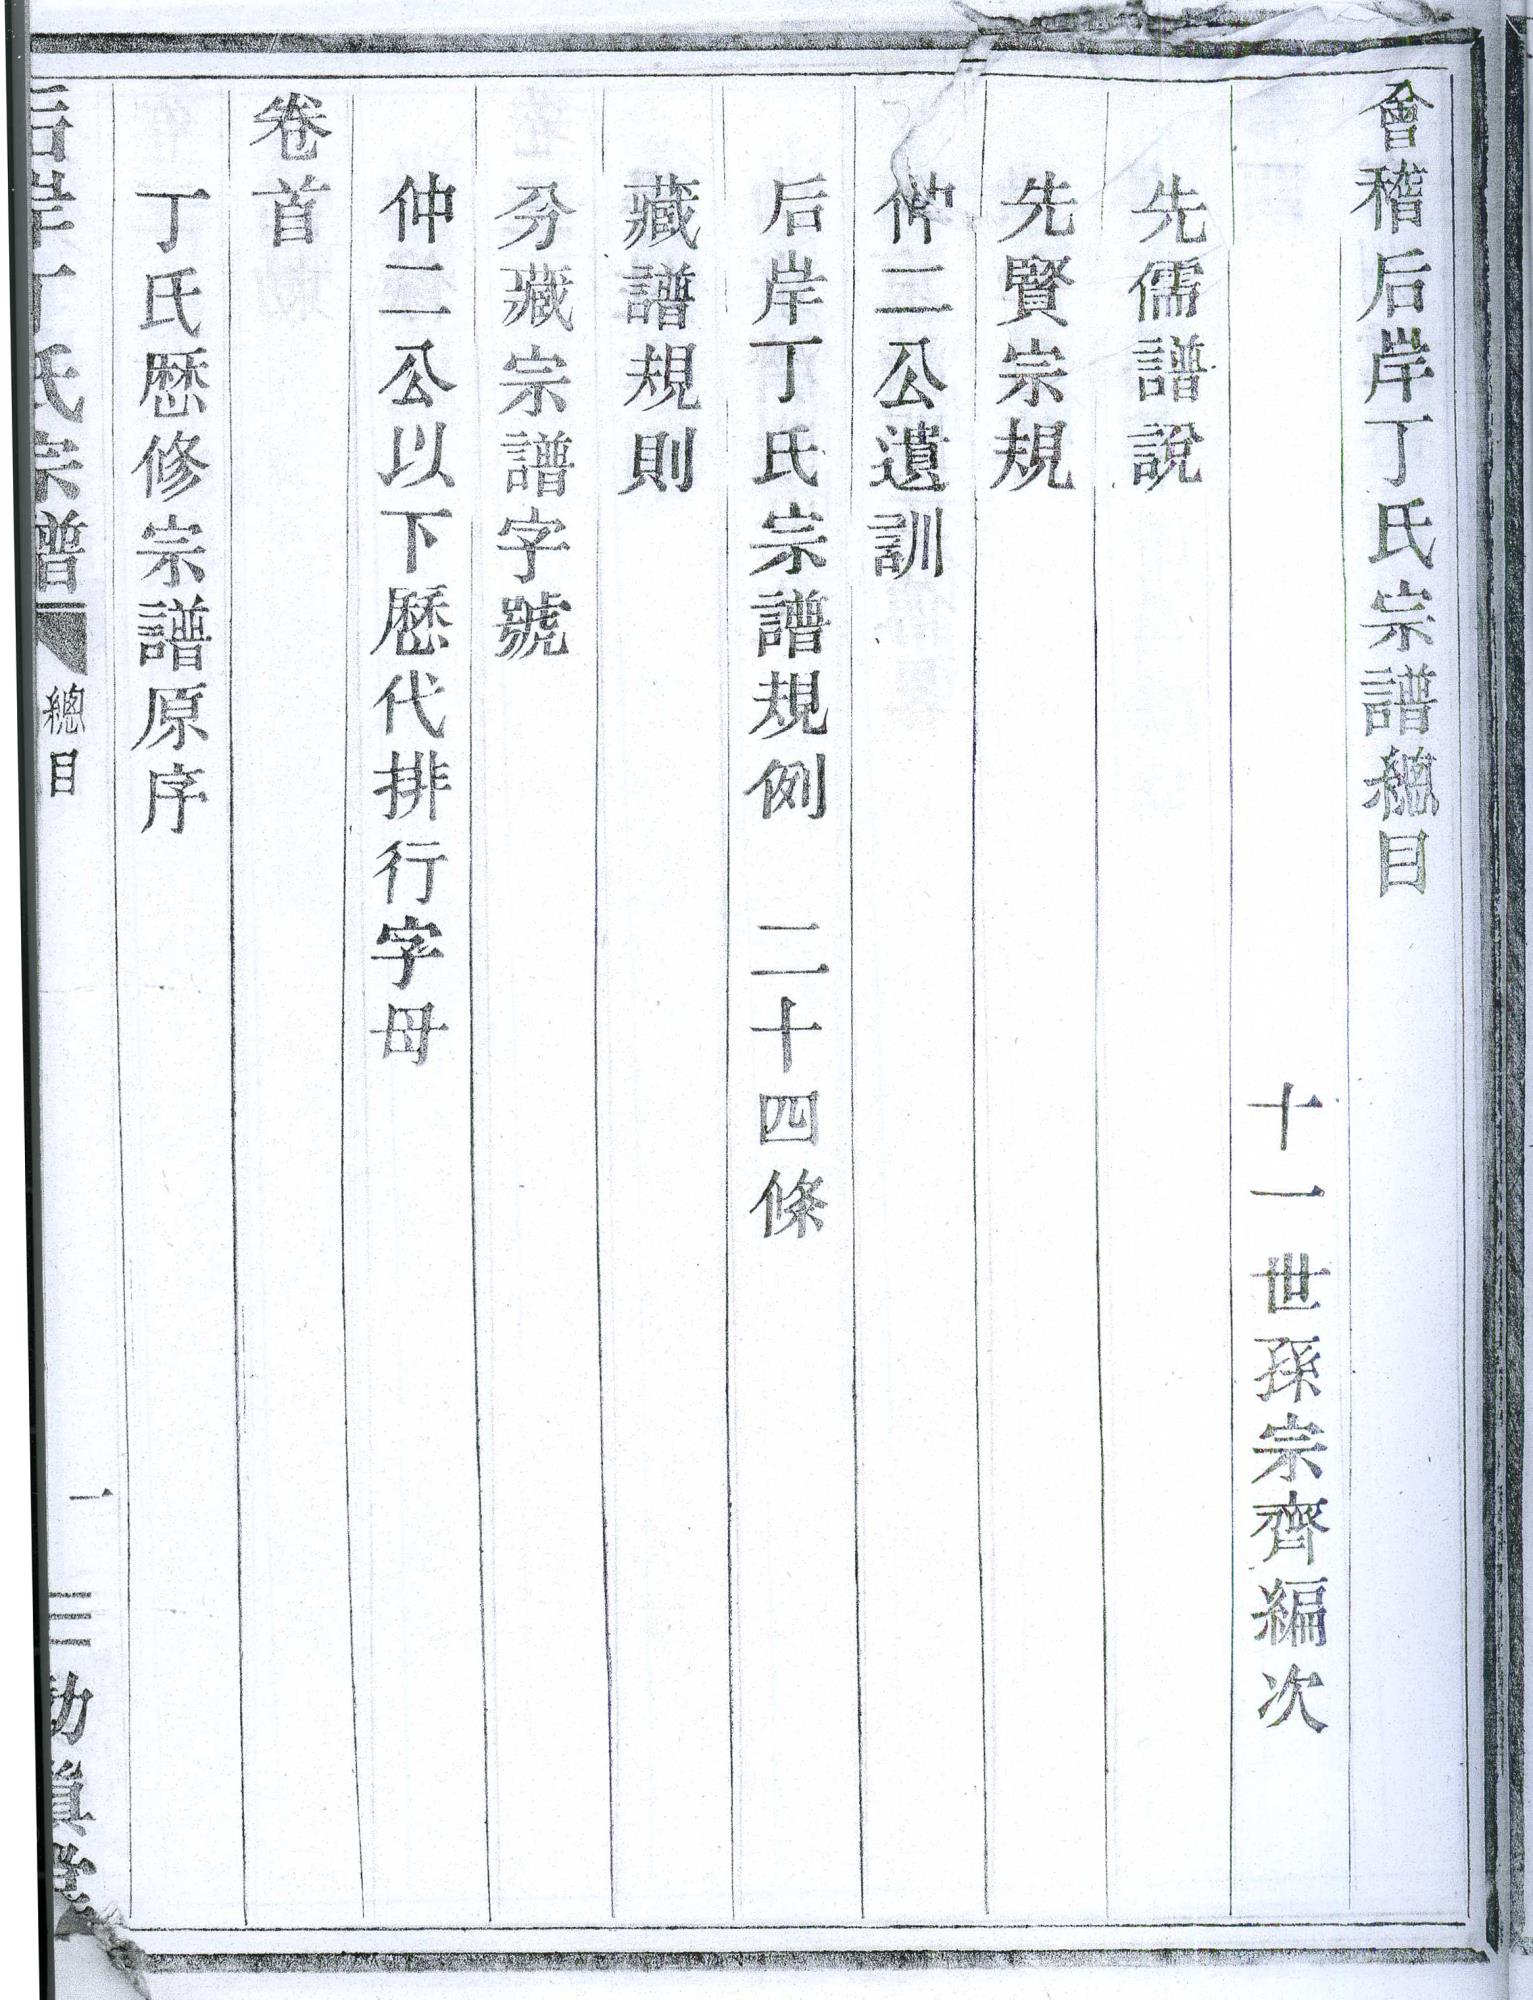 會稽后岸丁氏宗譜總目
十一世孫宗齊編次
先儒譜說
先賢宗規
仲二公遺訓
后岸丁氏宗譜規例　二十四條
藏譜規則
分藏宗譜字號
仲二公以下歷代排行字母
卷首
丁氏歷修宗譜原序
后岸丁氏宗譜
總目
一